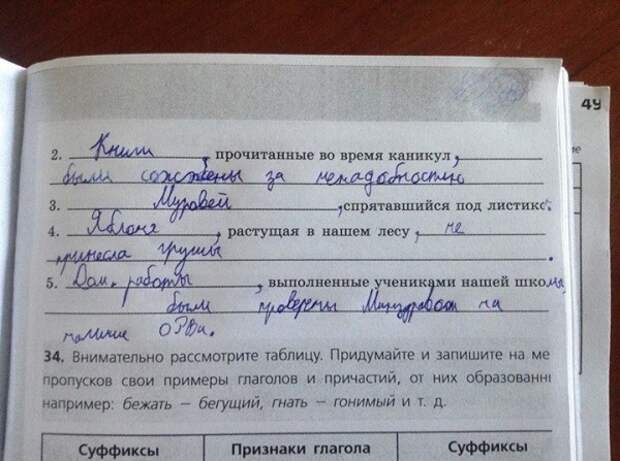 49
2. Книги, прочитанные во время каникул,
были сожжены за ненадобностью
3. Муровей, спрятавшийся под листиком
4. Яблоня, растущая в нашем лесу, не
принесла грушы
5. Дом. работы, выполненные учениками нашей школы,
были проверены Минздравом на
наличие ОРВи.
34. Внимательно рассмотрите таблицу. Придумайте и запишите на ме
пропусков свои примеры глаголов и причастий, от них образованн
например: бежать – бегущий, гнать – гонимый и т. д.
Суффиксы Признаки глагола Суффиксы